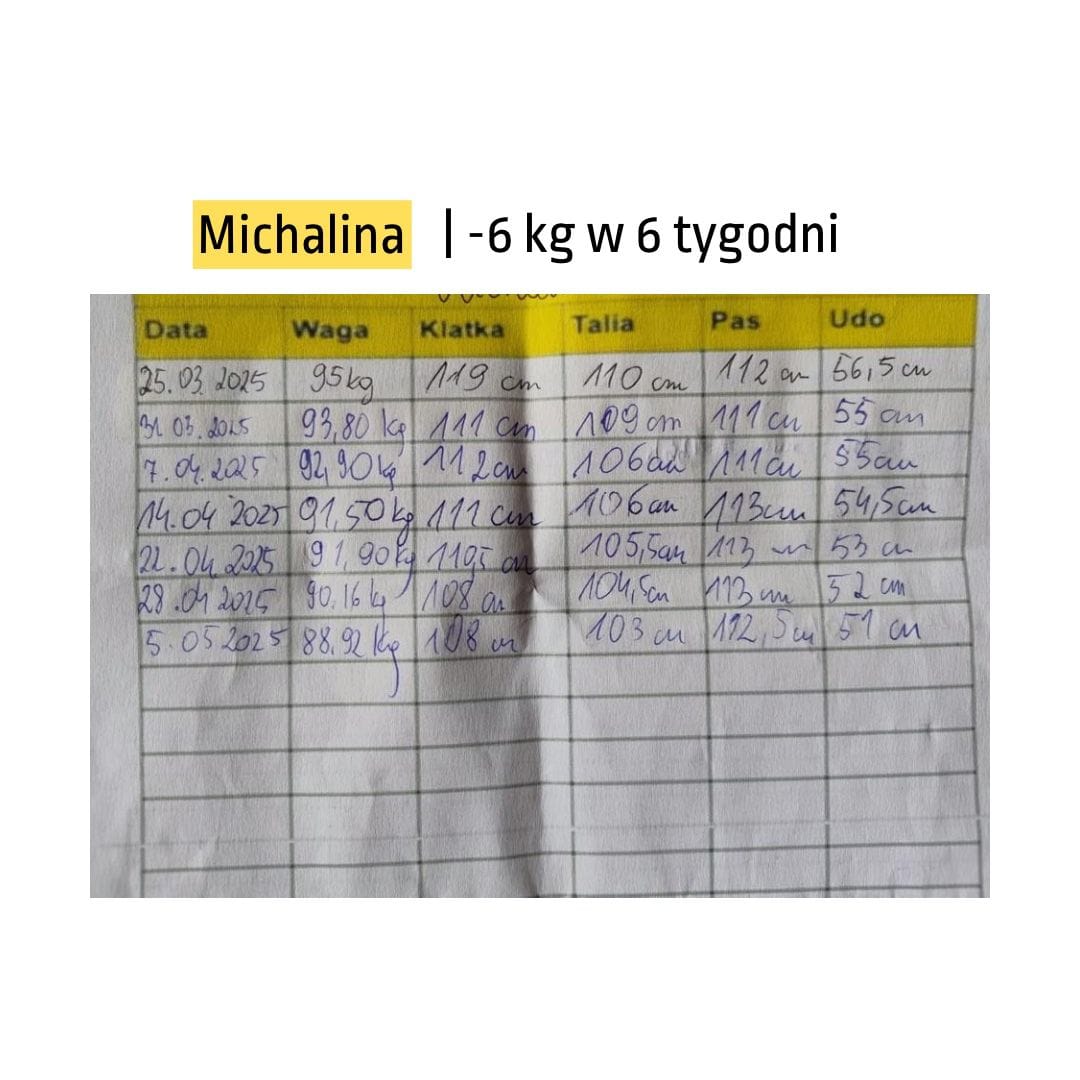 Michalina | -6 kg w 6 tygodni
Data Waga Klatka Talia Pas Udo
25.03.2025 95kg 119 cm 110 cm 112 cm 56,5 cm
31 03.2025 93,80 kg 111 cm 109 cm 111 cm 55 cm
7.04.2025 92,90kg 112cm 106cm 111cm 55cm
14.04 2025 91,50kg 111 cm 106cm 113cm 54,5cm
22.04.2025 91,90kg 110,5 cm 105,5cm 113 cm 53 cm
28.04 2025 90,16kg 108 cm 104,5cm 113cm 52 cm
5.05 2025 88,92 kg 108 cm 103 cm 112,5cm 51 cm